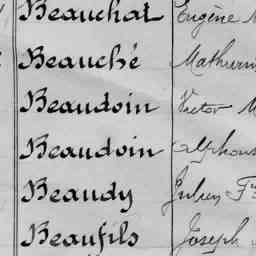 Beauchat Eugène
Beauché Mathurin
Beaudoin Victor
Beaudoin Alphons
Beaudy Julien
Beaufils Joseph